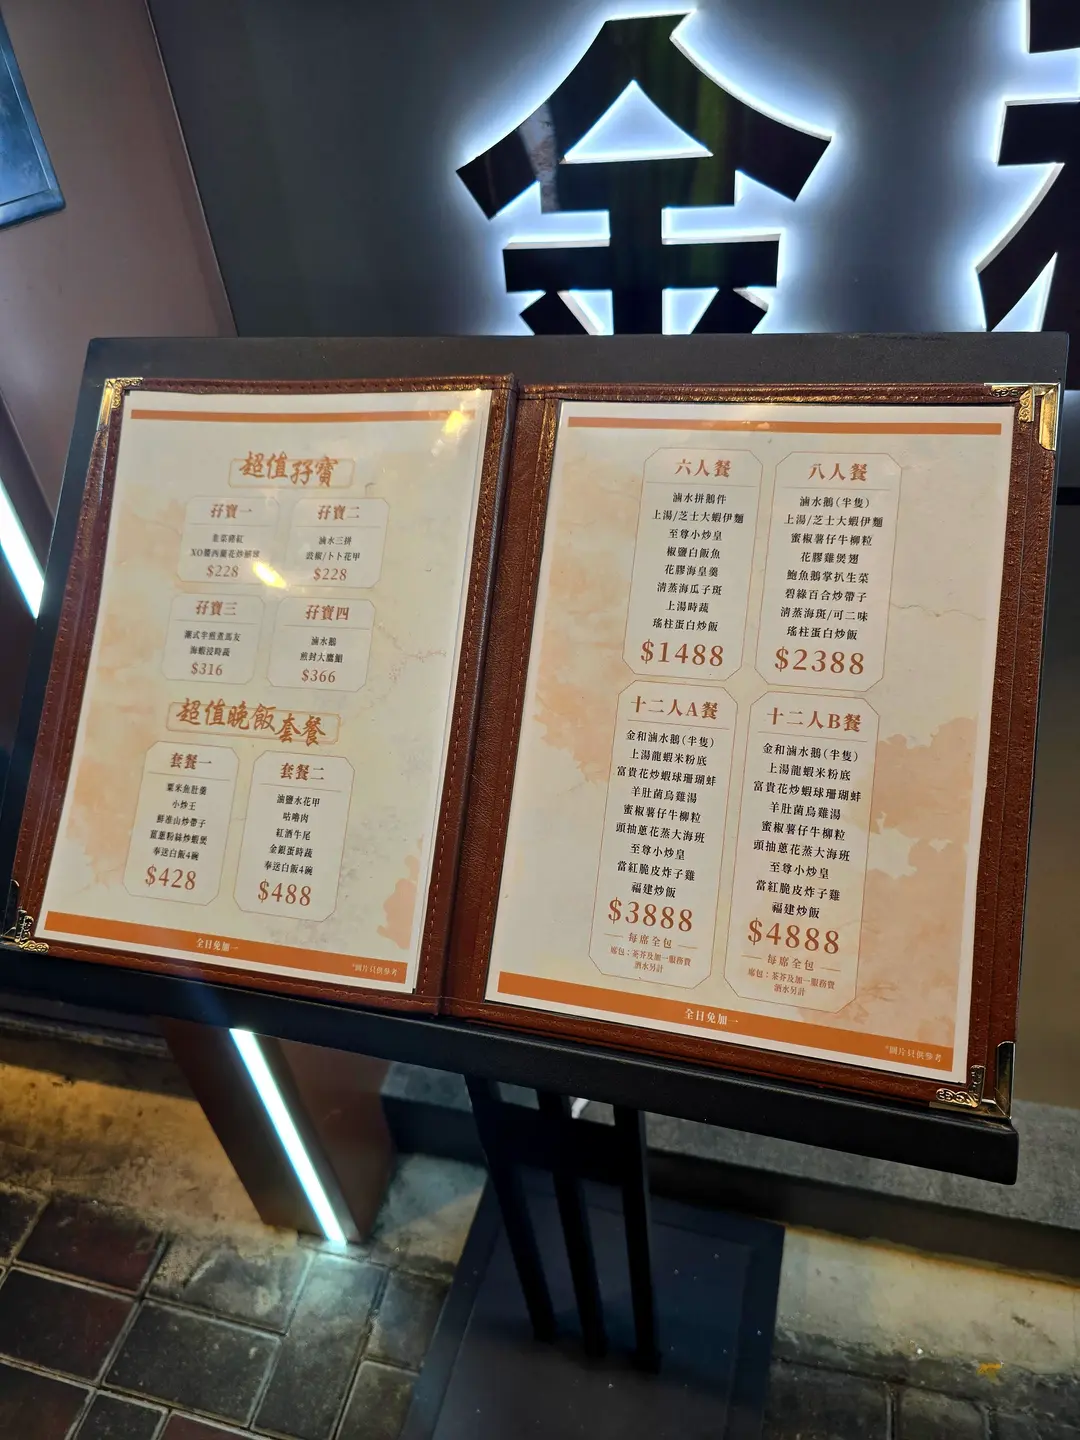 金
超值孖寶
孖寶一
韭菜豬紅
$228
孖寶二
滷水三拼
豉椒/卜卜花甲
$228
孖寶三
潮式半煎煮馬友
海蝦浸時蔬
$316
孖寶四
滷水鵝
煎封大鷹鯧
$366
超值晚飯套餐
套餐一
粟米魚肚羹
小炒王
鮮淮山炒帶子
薑蔥粉絲炒蝦煲
奉送白飯4碗
$428
套餐二
滷鹽水花甲
咕嚕肉
紅酒牛尾
金銀蛋時蔬
奉送白飯4碗
$488
全日免加一
*圖片只供參考
六人餐
滷水拼鵝件
上湯/芝士大蝦伊麵
至尊小炒皇
椒鹽白飯魚
花膠海皇羹
清蒸海瓜子斑
上湯時蔬
瑤柱蛋白炒飯
$1488
八人餐
滷水鵝(半隻)
上湯/芝士大蝦伊麵
蜜椒薯仔牛柳粒
花膠雞煲翅
鮑魚鵝掌扒生菜
碧綠百合炒帶子
清蒸海斑/可二味
瑤柱蛋白炒飯
$2388
十二人A餐
金和滷水鵝(半隻)
上湯龍蝦米粉底
富貴花炒蝦球珊瑚蚌
羊肚菌烏雞湯
蜜椒薯仔牛柳粒
頭抽蔥花蒸大海班
至尊小炒皇
當紅脆皮炸子雞
福建炒飯
$3888
每席全包
席包：茶芥及加一服務費
酒水另計
十二人B餐
金和滷水鵝(半隻)
上湯龍蝦米粉底
富貴花炒蝦球珊瑚蚌
羊肚菌烏雞湯
蜜椒薯仔牛柳粒
頭抽蔥花蒸大海班
至尊小炒皇
當紅脆皮炸子雞
福建炒飯
$4888
每席全包
席包：茶芥及加一服務費
酒水另計
全日免加一
*圖片只供參考